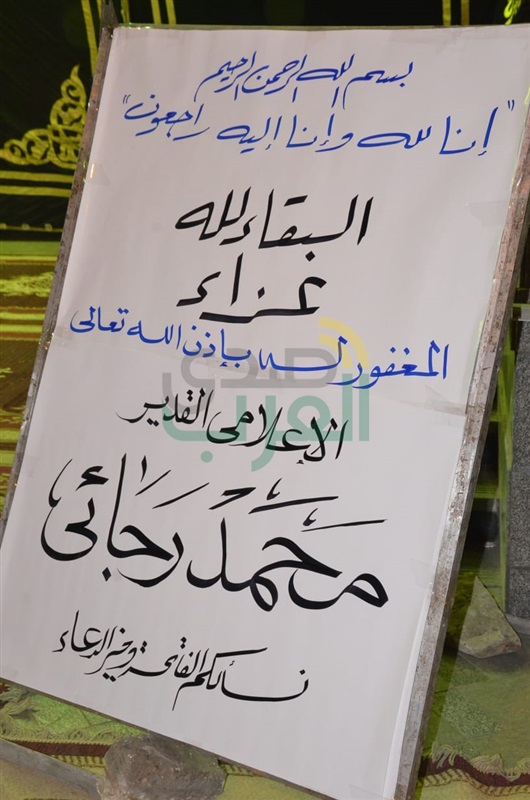 بسم الله الرحمن الرحيم
"إنا لله وإنا إليه راجعون"
البقاء لله
عزاء
المغفور له بإذن الله تعالى
الإعلامى القدير
محمد رجائى
نسألكم الفاتحة وخير الدعاء
صدى
العرب